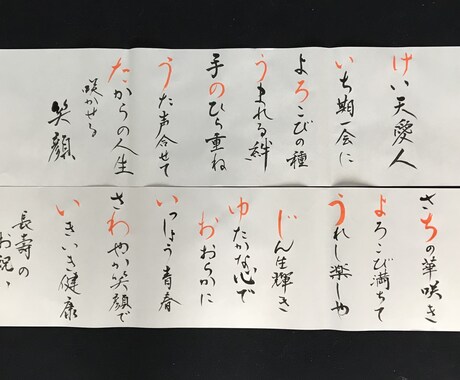 けい天愛人
いち期一会に
よろこびの種
うまれる絆
手のひら重ね
うた声合せて
たからの人生
咲かせる
笑顔
さちの華咲き
よろこび満ちて
うれし楽しや
じん生輝き
ゆたかな心で
おおらかに
いっしょう青春
さわやか笑顔で
いきいき健康
長壽の
お祝い